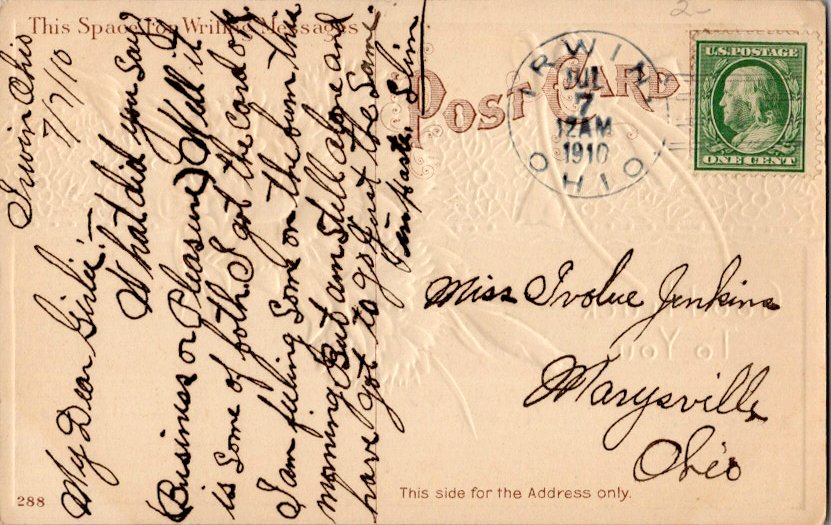 This Space for Writing Messages
POST CARD
IRWIN
JUL
7
12AM
1910
OHIO
U.S. POSTAGE
ONE CENT
2-
Irwin Ohio
7/7/10
My Dear Girlie:—
What did you say
(Business or Pleasure) Well it
is some of both. I got the card ok
I am feeling some on the bum this
morning. But am still alone and
have got to go just the same.
In haste. Slim
Miss Ivolue Jenkins
Marysville
Ohio
Good Luck
To You
288
This side for the Address only.